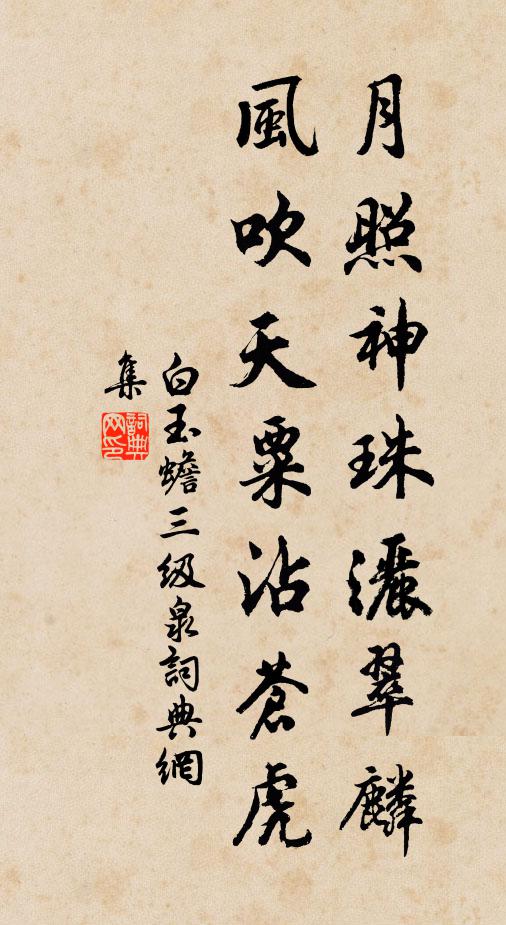 月照神珠灑翠麟
風吹天粟沾蒼虎
白玉蟾三级泉詞典網
集
詞典
网印